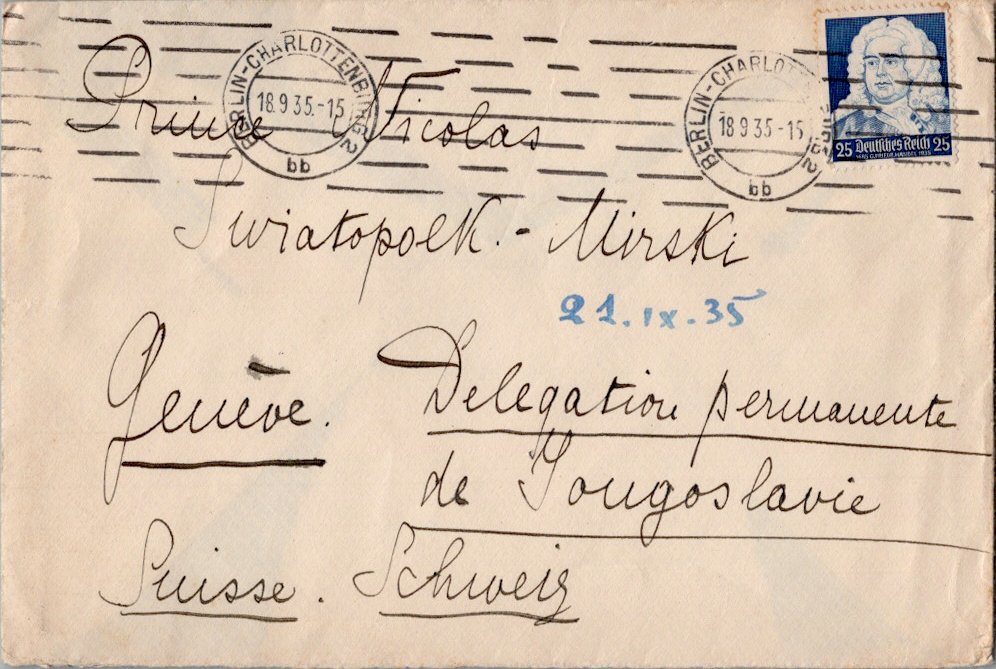 BERLIN-CHARLOTTENBURG 2
18.9.35.-15
bb
BERLIN-CHARLOTTENBURG 2
18.9.35-15
bb
25 Deutsches Reich 25
1685 G. FRIEDR. HÄNDEL 1935
Prince Nicolas
Swiatopolk.-Mirski
21.IX.35
Genève. Delegation permanente
de Yougoslavie
Suisse. Schweiz